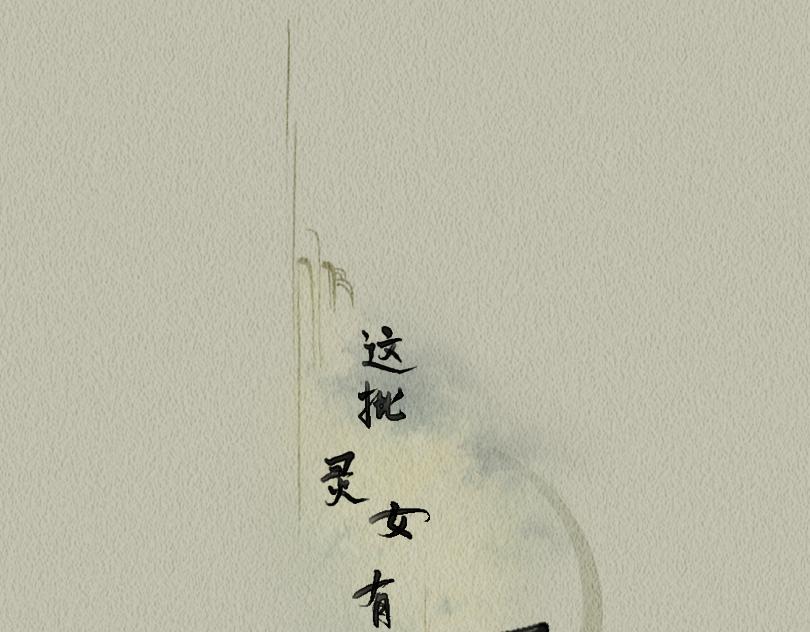 这批灵女有